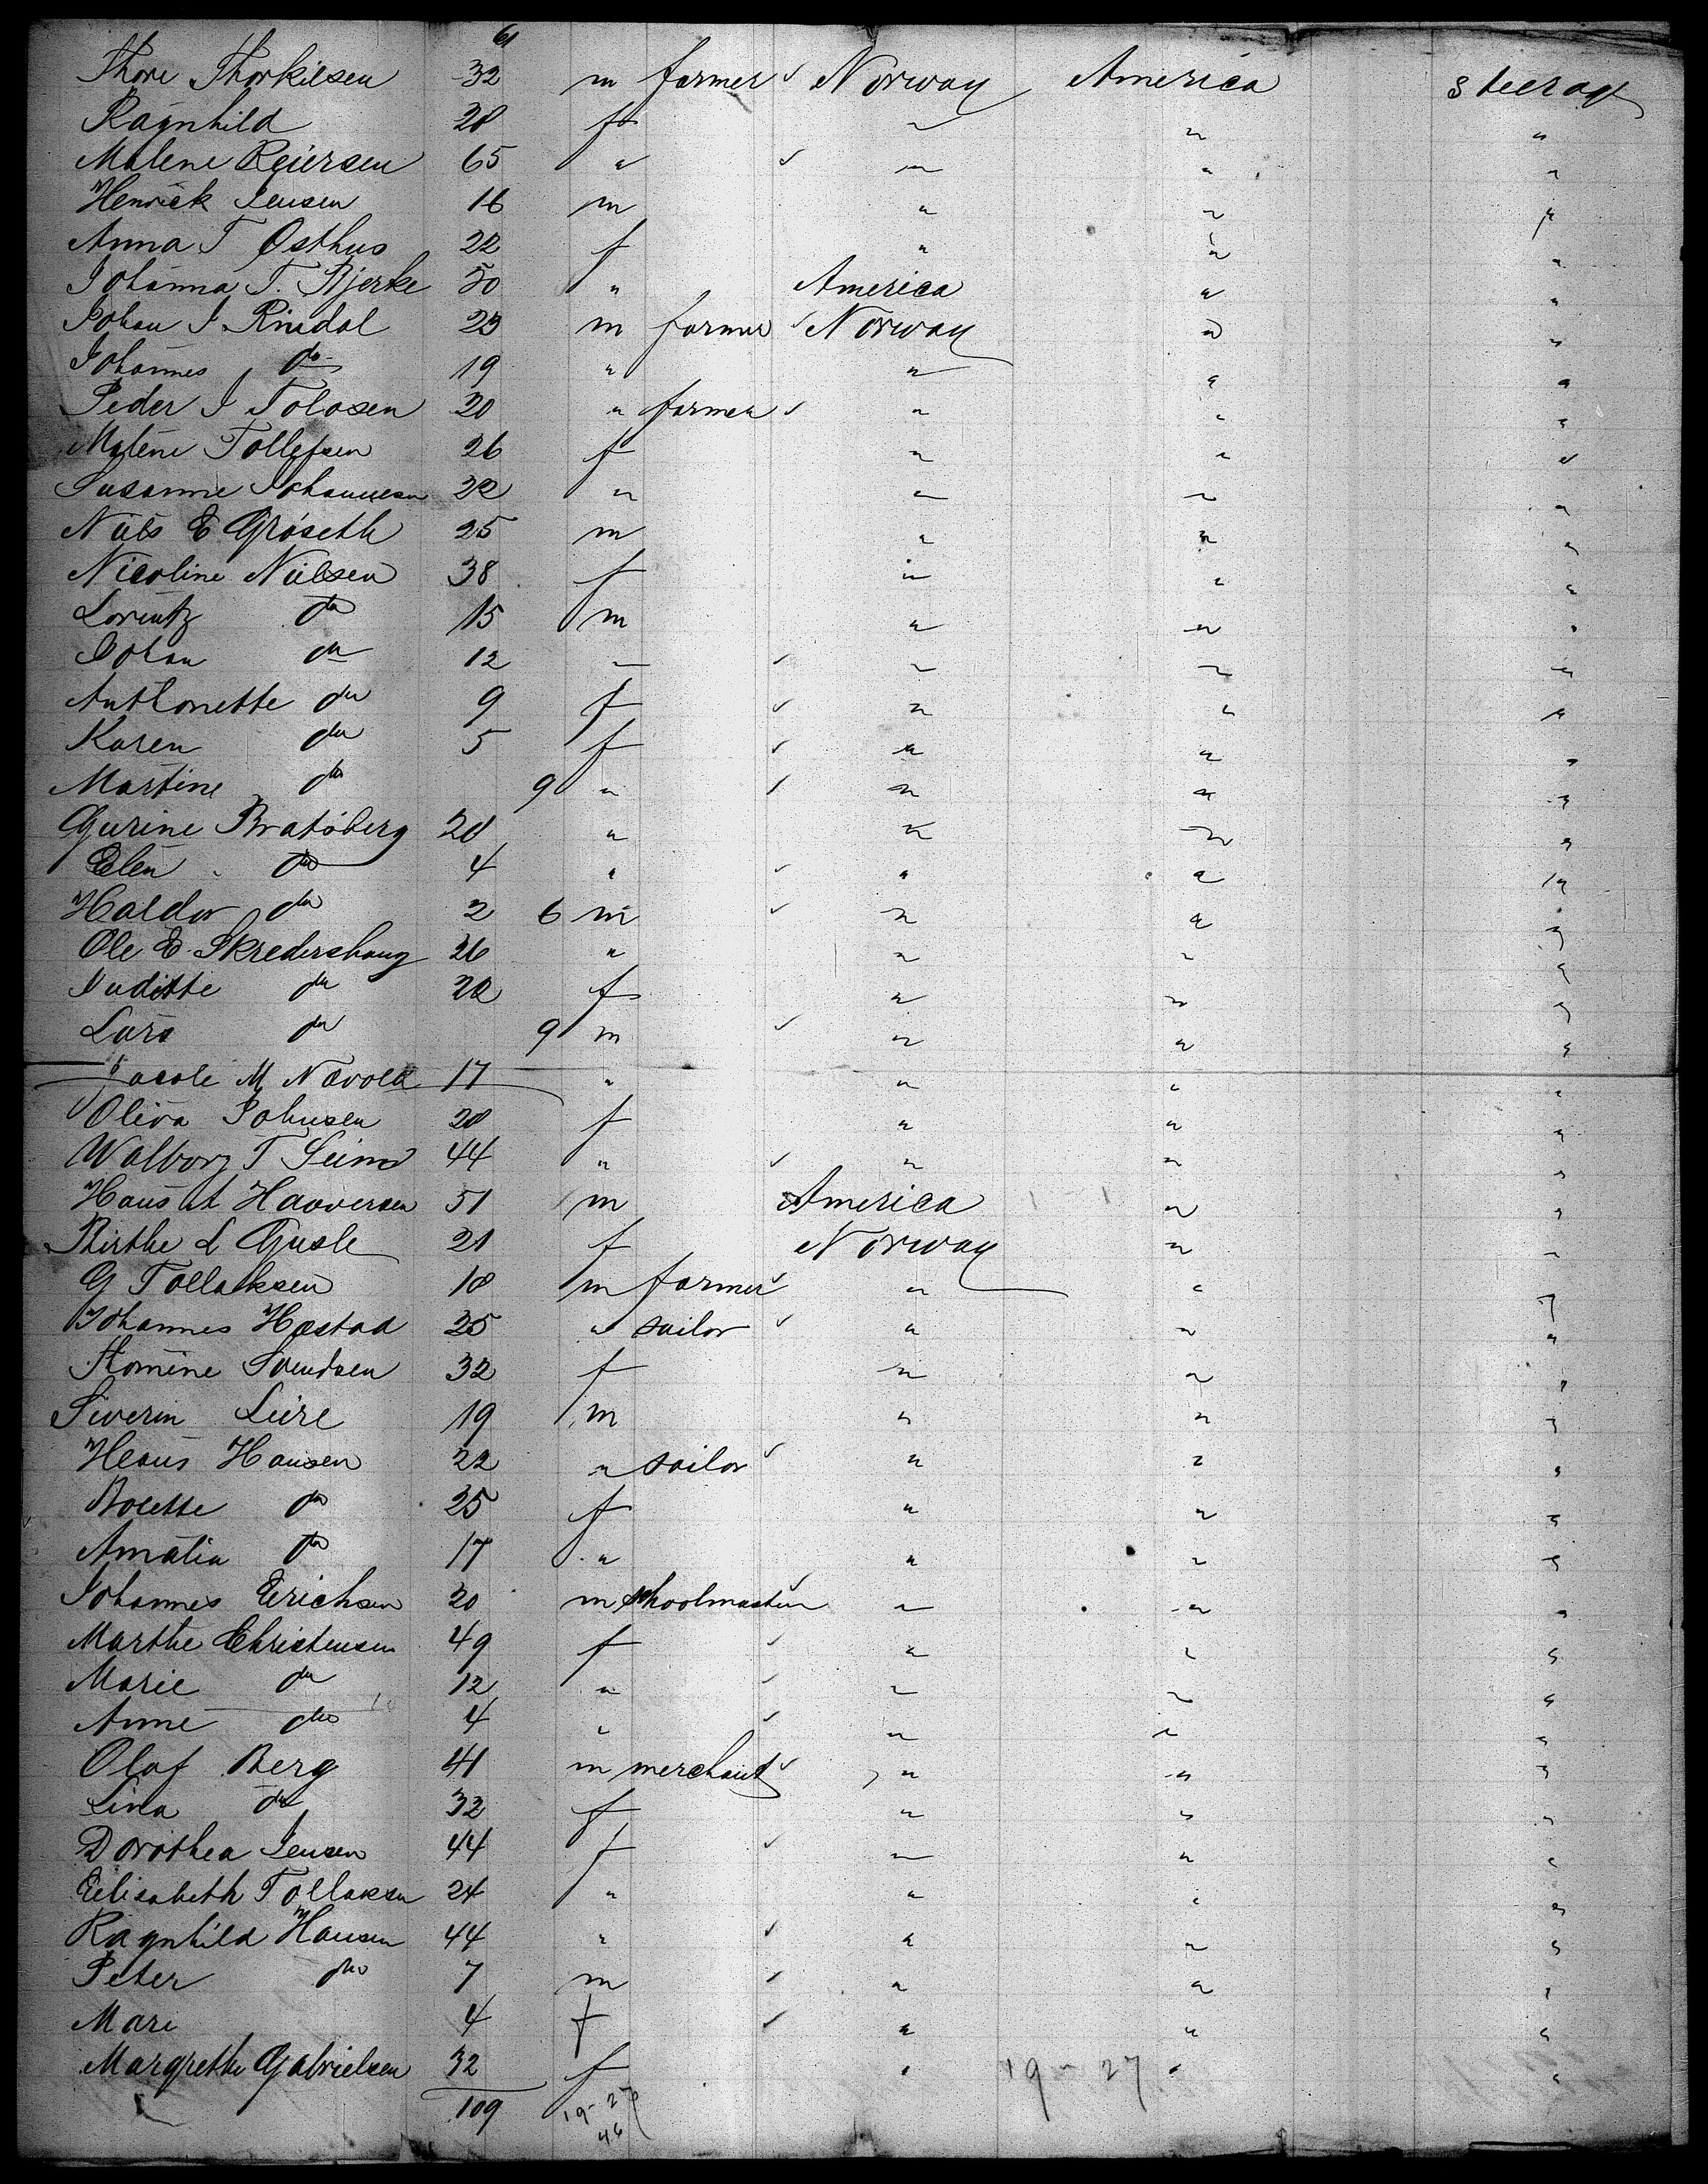 61
Thore Thorkilsen 32 m farmer Norway America Steerage
Ragnhild 28 f " " "
Malene Reiersen 65 " " " "
Henrick Jensen 16 m " " "
Anna T Østhus 22 f " " "
Johanna T. Bjerke 50 " America " "
Johan J Rindal 23 m farmer Norway " "
Johannes do 19 " " " "
Peder J Tolosen 20 " farmer " " "
Malene Tollefsen 26 f " " "
Susanne Johannesen 22 " " " "
Niels E Gröseth 25 m " " "
Nicoline Nielsen 38 f " " "
Lorentz do 15 m " " "
Johan do 12 " " " "
Anttonette do 9 f " " "
Karen do 5 f " " "
Martine do 9 " " " "
Gurine Bratöberg 28 " " " "
Elen do 4 " " " "
Haldor do 2 6 m " " "
Ole E. Skredershaug 26 " " " "
Juditte do 22 f " " "
Lars do 9 m " " "
Jacob M Navold 17 " " " "
Oliva Johnsen 28 f " " "
Walborg T Seim 44 " " " "
Hans A Haaversen 51 m America " "
Birthe L Gusle 21 f Norway " "
G Tollaksen 18 m farmer " " "
Johannes Hastad 25 " sailor " " "
Thomine Svendsen 32 f " " "
Siverin Leire 19 m " " "
Hans Hansen 22 " sailor " " "
Bolette do 25 f " " "
Amalia do 17 " " " "
Johannes Erichsen 20 m schoolmaster " " "
Marthe Christensen 49 f " " "
Marie do 12 " " " "
Anne do 4 " " " "
Olaf Berg 41 m merchant " " "
Lina do 32 f " " "
Dorothea Jensen 44 f " " "
Elisabeth Tollaksen 24 " " " "
Ragnhild Hansen 44 " " " "
Peter do 7 m " " "
Mari 4 f " " "
Margrethe Gabrielsen 32 f " 19-27 " "
109 19-27
46